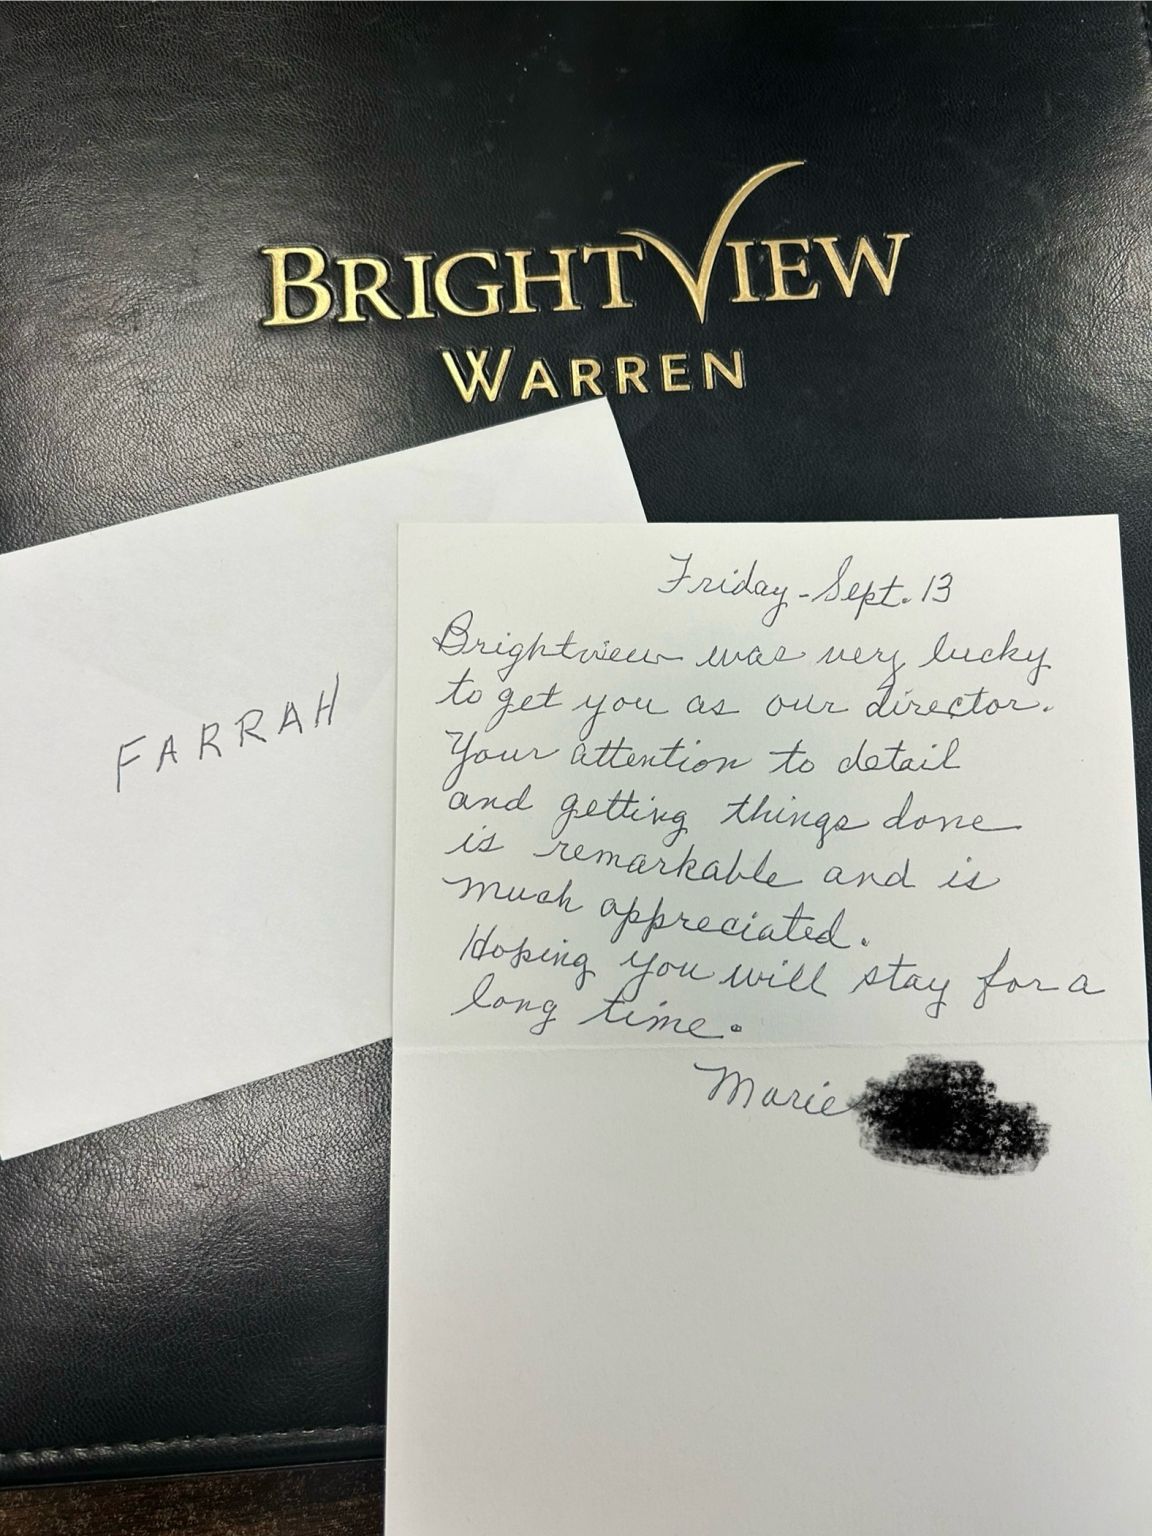 BRIGHTVIEW
WARREN
FARRAH
Friday - Sept. 13
Brightview was very lucky
to get you as our director.
Your attention to detail
and getting things done
is remarkable and is
much appreciated.
Hoping you will stay for a
long time.
Marie